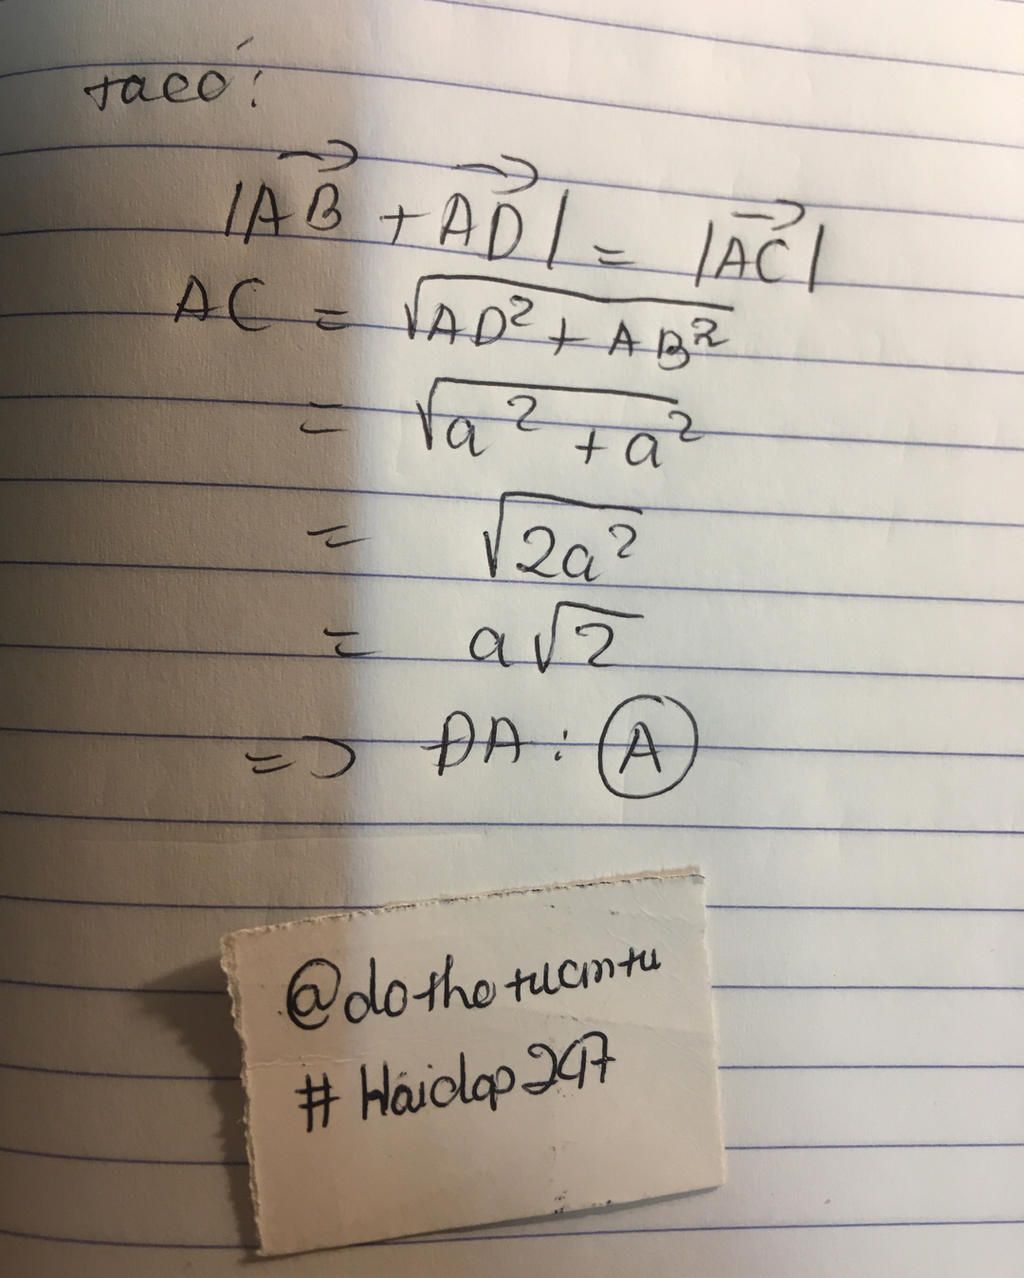 ta có:
|\overrightarrow{AB} + \overrightarrow{AD}| = |\overrightarrow{AC}|
AC = √(AD² + AB²)
= √(a² + a²)
= √(2a²)
= a√2
=> ĐA: A
@dothetucamtu
#Hoidap247